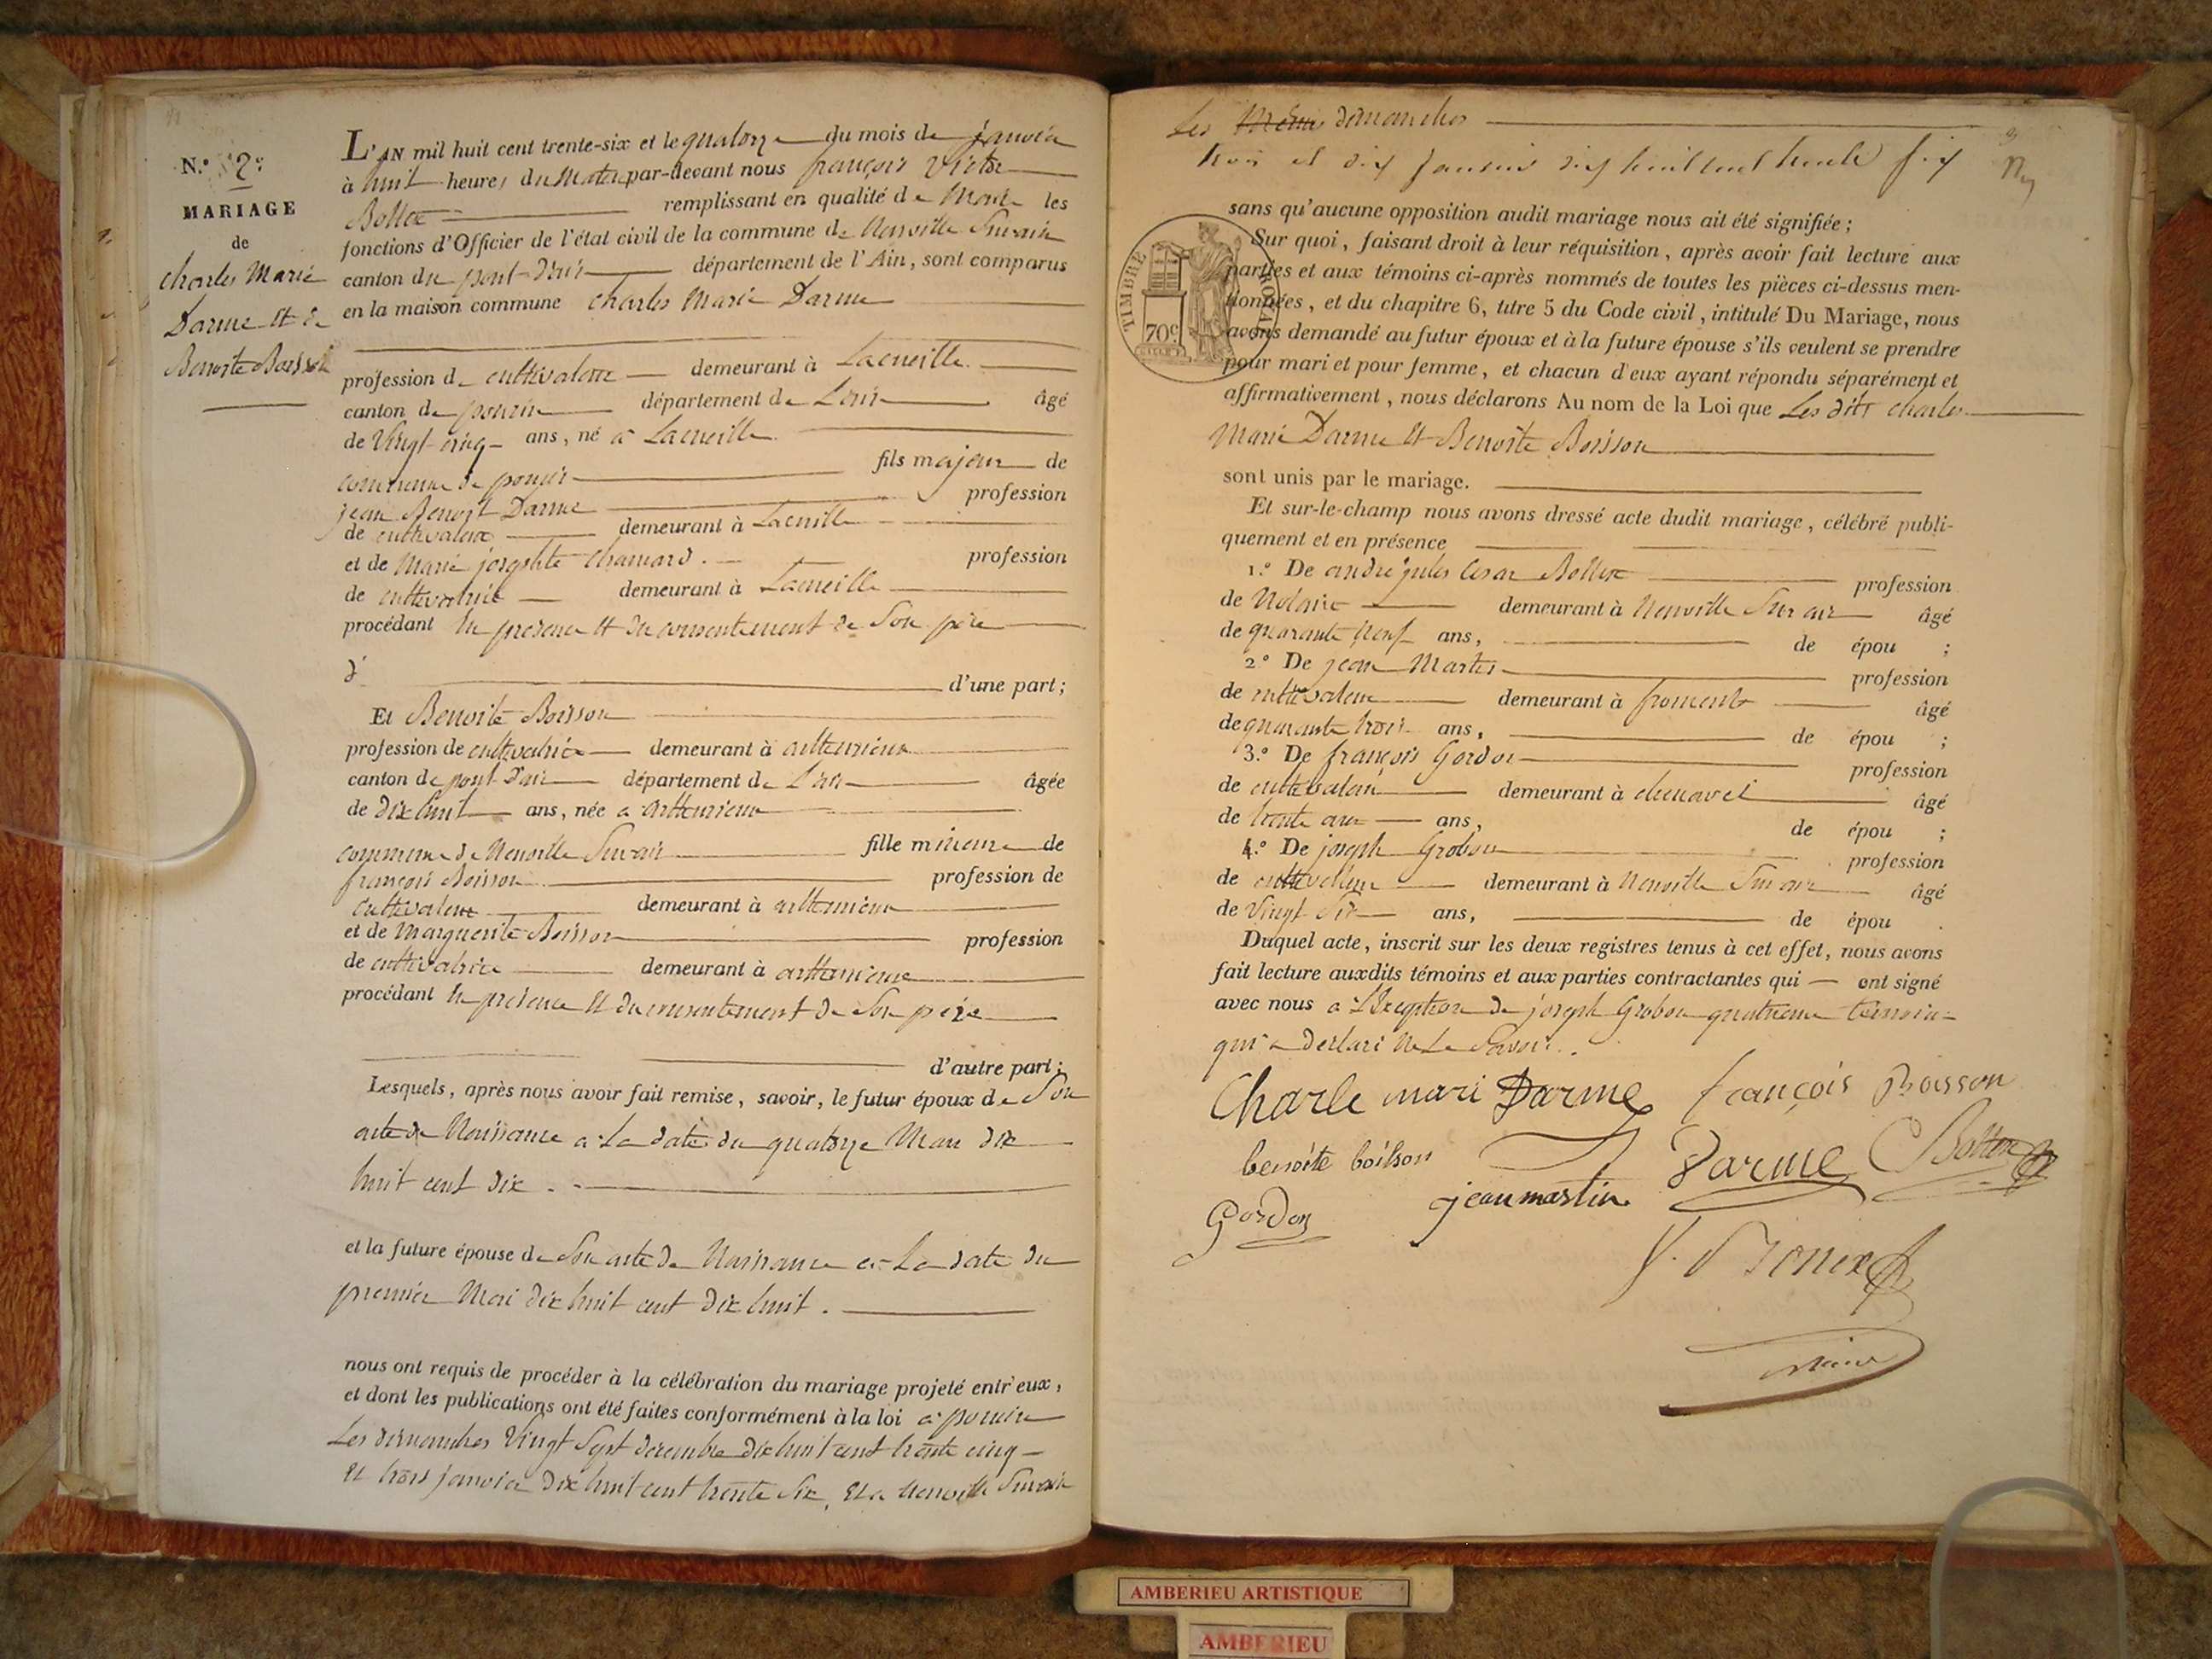 N.º 2e
MARIAGE
de
Charles Marie
Darme et de
Benoite Boisson
L'AN mil huit cent trente-six et le quatorze du mois de janvier
à huit heures du matin par-devant nous françois Victor
Bottex remplissant en qualité de Maire les
fonctions d'Officier de l'état civil de la commune de Neuville Sur ain
canton du pont-d'ain département de l'Ain, sont comparus
en la maison commune Charles Marie Darme
profession de cultivateur demeurant à Lacueille
canton de poncin département de L'ain âgé
de Vingt-cinq ans, né a Lacueille
commune de poncin fils majeur de
jean Benoit Darme profession
de cultivateur demeurant à Lacueille
et de Marie josephte Chanard. profession
de cultivatrice demeurant à Lacueille
procédant En presence et du consentement de Son père
d' d'une part;
Et Benoite Boisson
profession de cultivatrice demeurant à
canton de pont-d'ain département de L'ain âgée
de dix huit ans, née a
commune de Neuville Sur ain fille mineure de
françois Boisson profession de
cultivateur demeurant à
et de Marguerite Boisson profession
de cultivatrice demeurant à
procédant En presence et du consentement de Son père
d'autre part;
Lesquels, après nous avoir fait remise, savoir, le futur époux de Son
acte de Naissance a La date du quatorze Mars dix
huit cent dix.
et la future épouse de Son acte de Naissance a La date du
premier Mai dix huit cent dix huit.
nous ont requis de procéder à la célébration du mariage projeté entr'eux,
et dont les publications ont été faites conformément à la loi a poncin
Les dimanches Vingt Sept decembre dix huit cent trente cinq
Et trois janvier dix huit cent trente Six, Et a Neuville Sur ain
Les Mêmes dimanches
trois et dix janvier dix huit cent trente six
sans qu'aucune opposition audit mariage nous ait été signifiée;
Sur quoi, faisant droit à leur réquisition, après avoir fait lecture aux
parties et aux témoins ci-après nommés de toutes les pièces ci-dessus men-
tionnées, et du chapitre 6, titre 5 du Code civil, intitulé Du Mariage, nous
avons demandé au futur époux et à la future épouse s'ils veulent se prendre
pour mari et pour femme, et chacun d'eux ayant répondu séparément et
affirmativement, nous déclarons Au nom de la Loi que Les dits Charles
Marie Darme Et Benoite Boisson
sont unis par le mariage.
Et sur-le-champ nous avons dressé acte dudit mariage, célébré publi-
quement et en présence
1.º De andré jules Cesar Bottex profession
de Notaire demeurant à Neuville Sur ain âgé
de quarante Neuf ans, de épou ;
2.º De jean Martin profession
de cultivateur demeurant à froment âgé
de quarante trois ans, de épou ;
3.º De françois Gordon profession
de cultivateur demeurant à chenavel âgé
de trente ans, de épou ;
4.º De joseph Grobon profession
de cultivateur demeurant à Neuville Sur ain âgé
de Vingt Six ans, de épou .
Duquel acte, inscrit sur les deux registres tenus à cet effet, nous avons
fait lecture auxdits témoins et aux parties contractantes qui ont signé
avec nous a L'Exception de joseph Grobon quatrieme temoin
qui a declaré Ne Le Savoir.
TIMBRE ROYAL
70c
Charle mari Darme françois Boisson
benoite boisson Darme Bottex
Gordon jean martin
V. Bottex
maire
AMBERIEU ARTISTIQUE
AMBERIEU